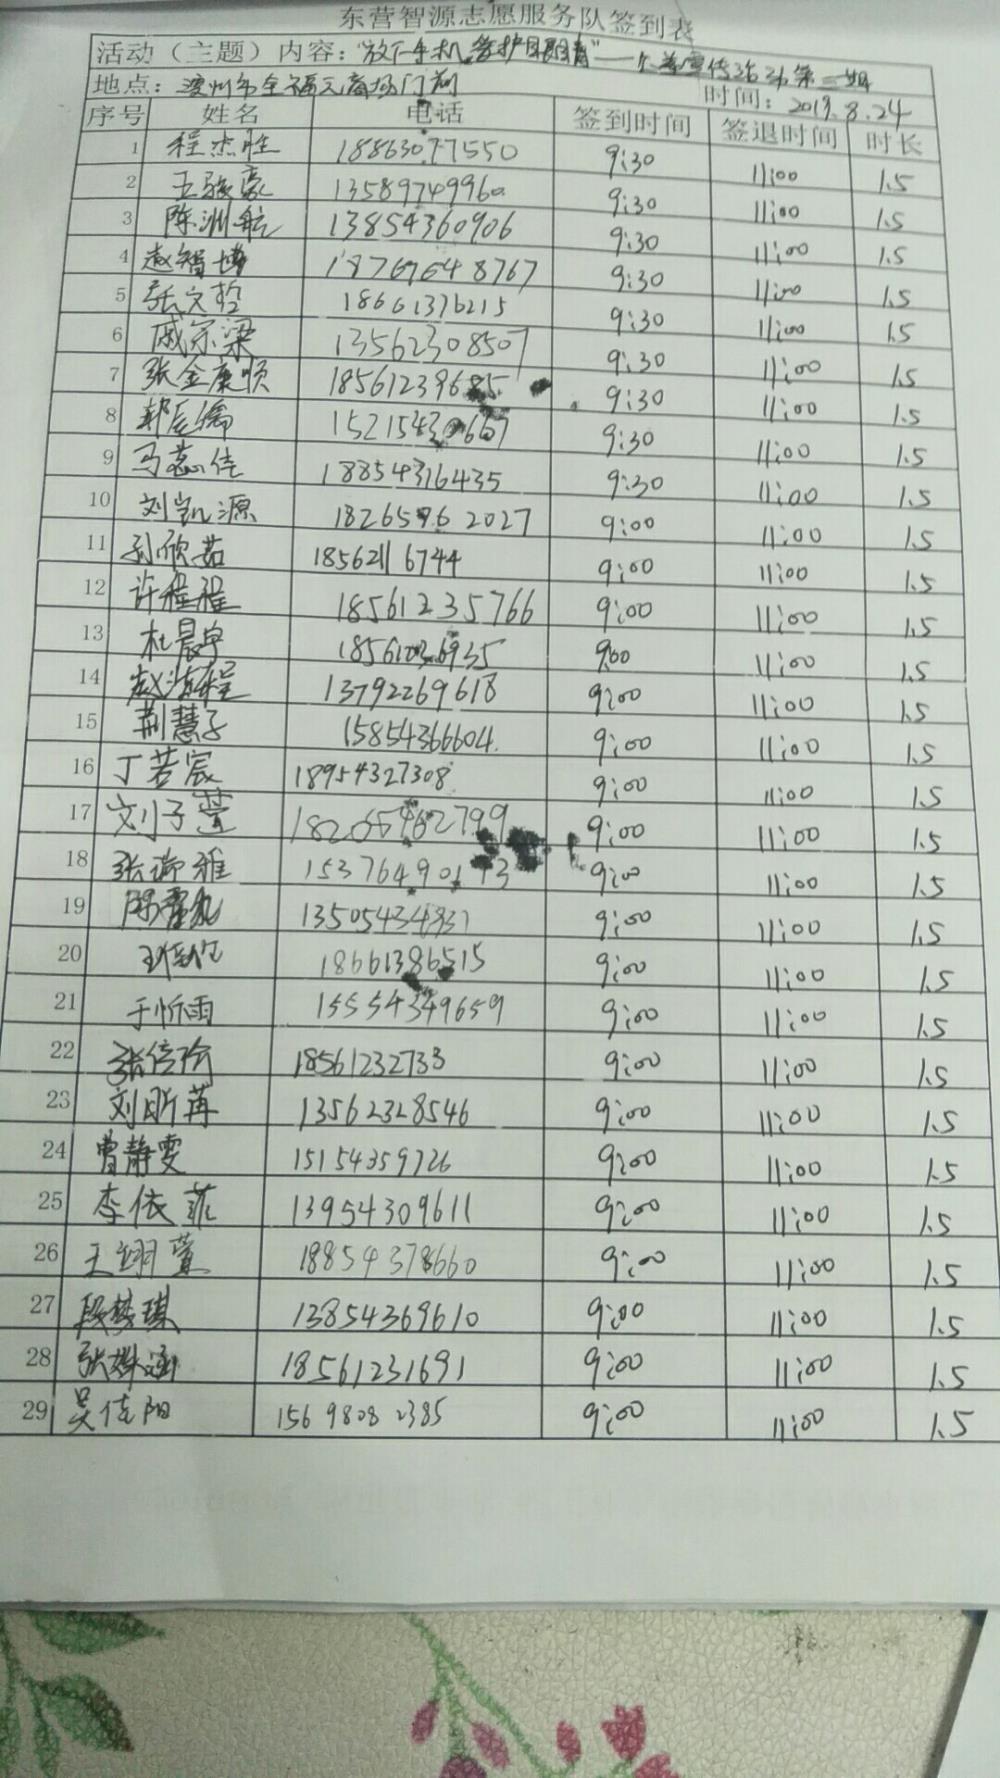 东营智源志愿服务队签到表
活动（主题）内容："放下手机 爱护眼睛"——公益宣传活动第三期
地点：滨州市全福元商场门前 时间：2019.8.24
序号 姓名 电话 签到时间 签退时间 时长
1 程杰胜 18863077550 9:30 11:00 1.5
2 王骏豪 13589749960 9:30 11:00 1.5
3 陈洲航 13854360906 9:30 11:00 1.5
4 赵智博 18769648767 9:30 11:00 1.5
5 张文哲 18661376215 9:30 11:00 1.5
6 戚宗梁 13562308507 9:30 11:00 1.5
7 张金康顺 9:30 11:00 1.5
8 9:30 11:00 1.5
9 马蕊佳 18854316435 9:30 11:00 1.5
10 刘凯源 18265962027 9:00 11:00 1.5
11 孙欣茹 18562116744 9:00 11:00 1.5
12 许程程 18561235766 9:00 11:00 1.5
13 杜晨宇 9:00 11:00 1.5
14 赵浩程 13792269618 9:00 11:00 1.5
15 荆慧子 15854366604 9:00 11:00 1.5
16 丁若宸 18954327308 9:00 11:00 1.5
17 刘子萱 9:00 11:00 1.5
18 张瑞雅 9:00 11:00 1.5
19 13505434837 9:00 11:00 1.5
20 18661386515 9:00 11:00 1.5
21 于忻雨 15554349659 9:00 11:00 1.5
22 张倍玲 18561232733 9:00 11:00 1.5
23 刘昕苒 13562328546 9:00 11:00 1.5
24 曹静雯 15154359726 9:00 11:00 1.5
25 李依菲 13954309611 9:00 11:00 1.5
26 王翊萱 18854378660 9:00 11:00 1.5
27 段梦琪 13854369610 9:00 11:00 1.5
28 张姝涵 18561231691 9:00 11:00 1.5
29 吴佳阳 15698082385 9:00 11:00 1.5